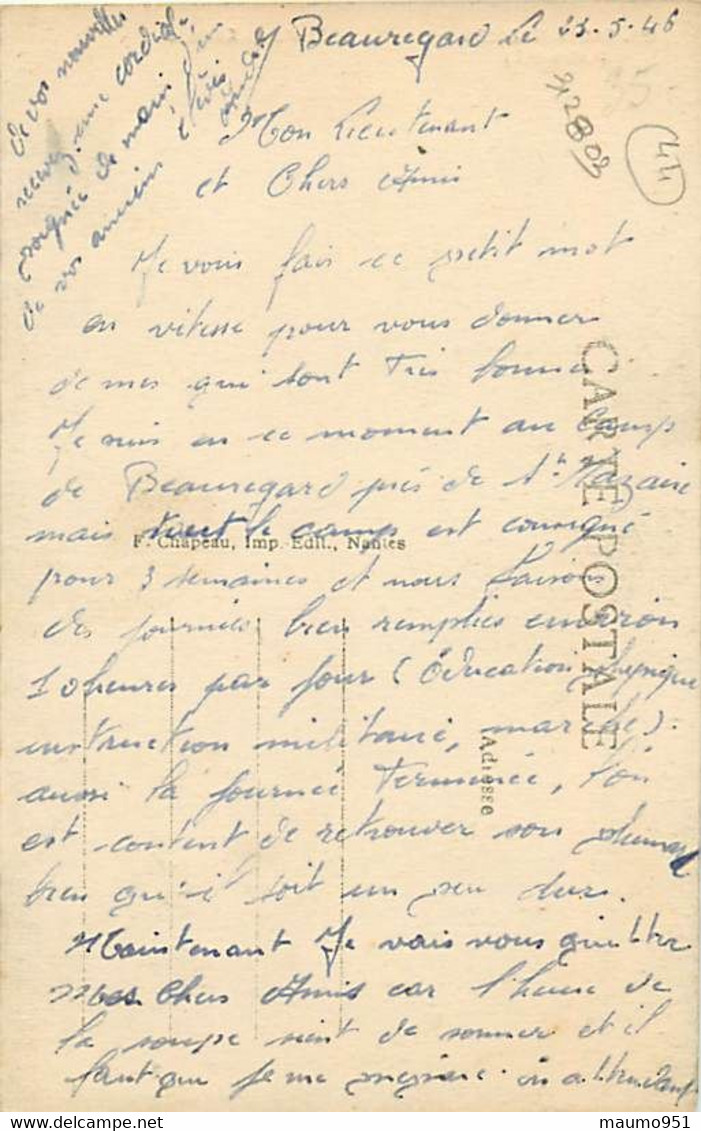 Beauregard Le 23-5-46
Mon Lieutenant
et Chers Amis
Je vous fais ce petit mot
en vitesse pour vous donner
de mes qui sont Très bonne
Je suis en ce moment au Camp
de Beauregard près de St Nazaire
mais tout le camp est consigné
pour 3 semaines et nous faisons
des journées bien remplies environ
10 heures par jour (éducation physique
instruction militaire, marche).
aussi la journée Terminée, l'on
est content de retrouver son plumard
bien qu'il soit un peu dur.
Maintenant Je vais vous quitter
Mes Chers Amis car l'heure de
la soupe vient de sonner et il
faut que je me prépare. en attendant
de vos nouvelles
recevez d'une cordiale
poignée de main d'un
de vos anciens élèves
42802
35-
44
CARTE POSTALE
F. Chapeau, Imp. Edit., Nantes
Adresse
maumo951